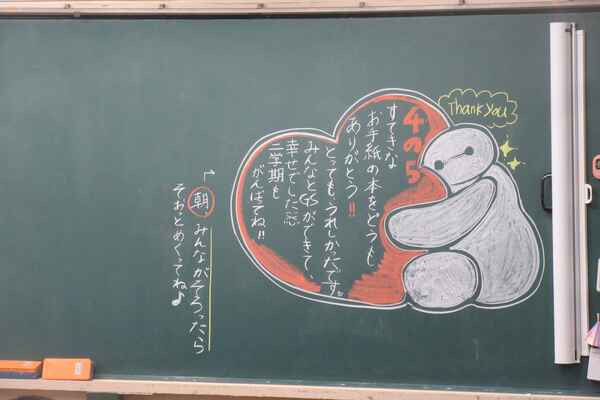 Thank you
4の5
すてきな
お手紙の本をどうも
ありがとう!!
とっても、うれしかったです。
みんなとGSができて、
幸せでした
二学期も
がんばってね!!
朝、みんながそろったら
そぉっとめくってね♪